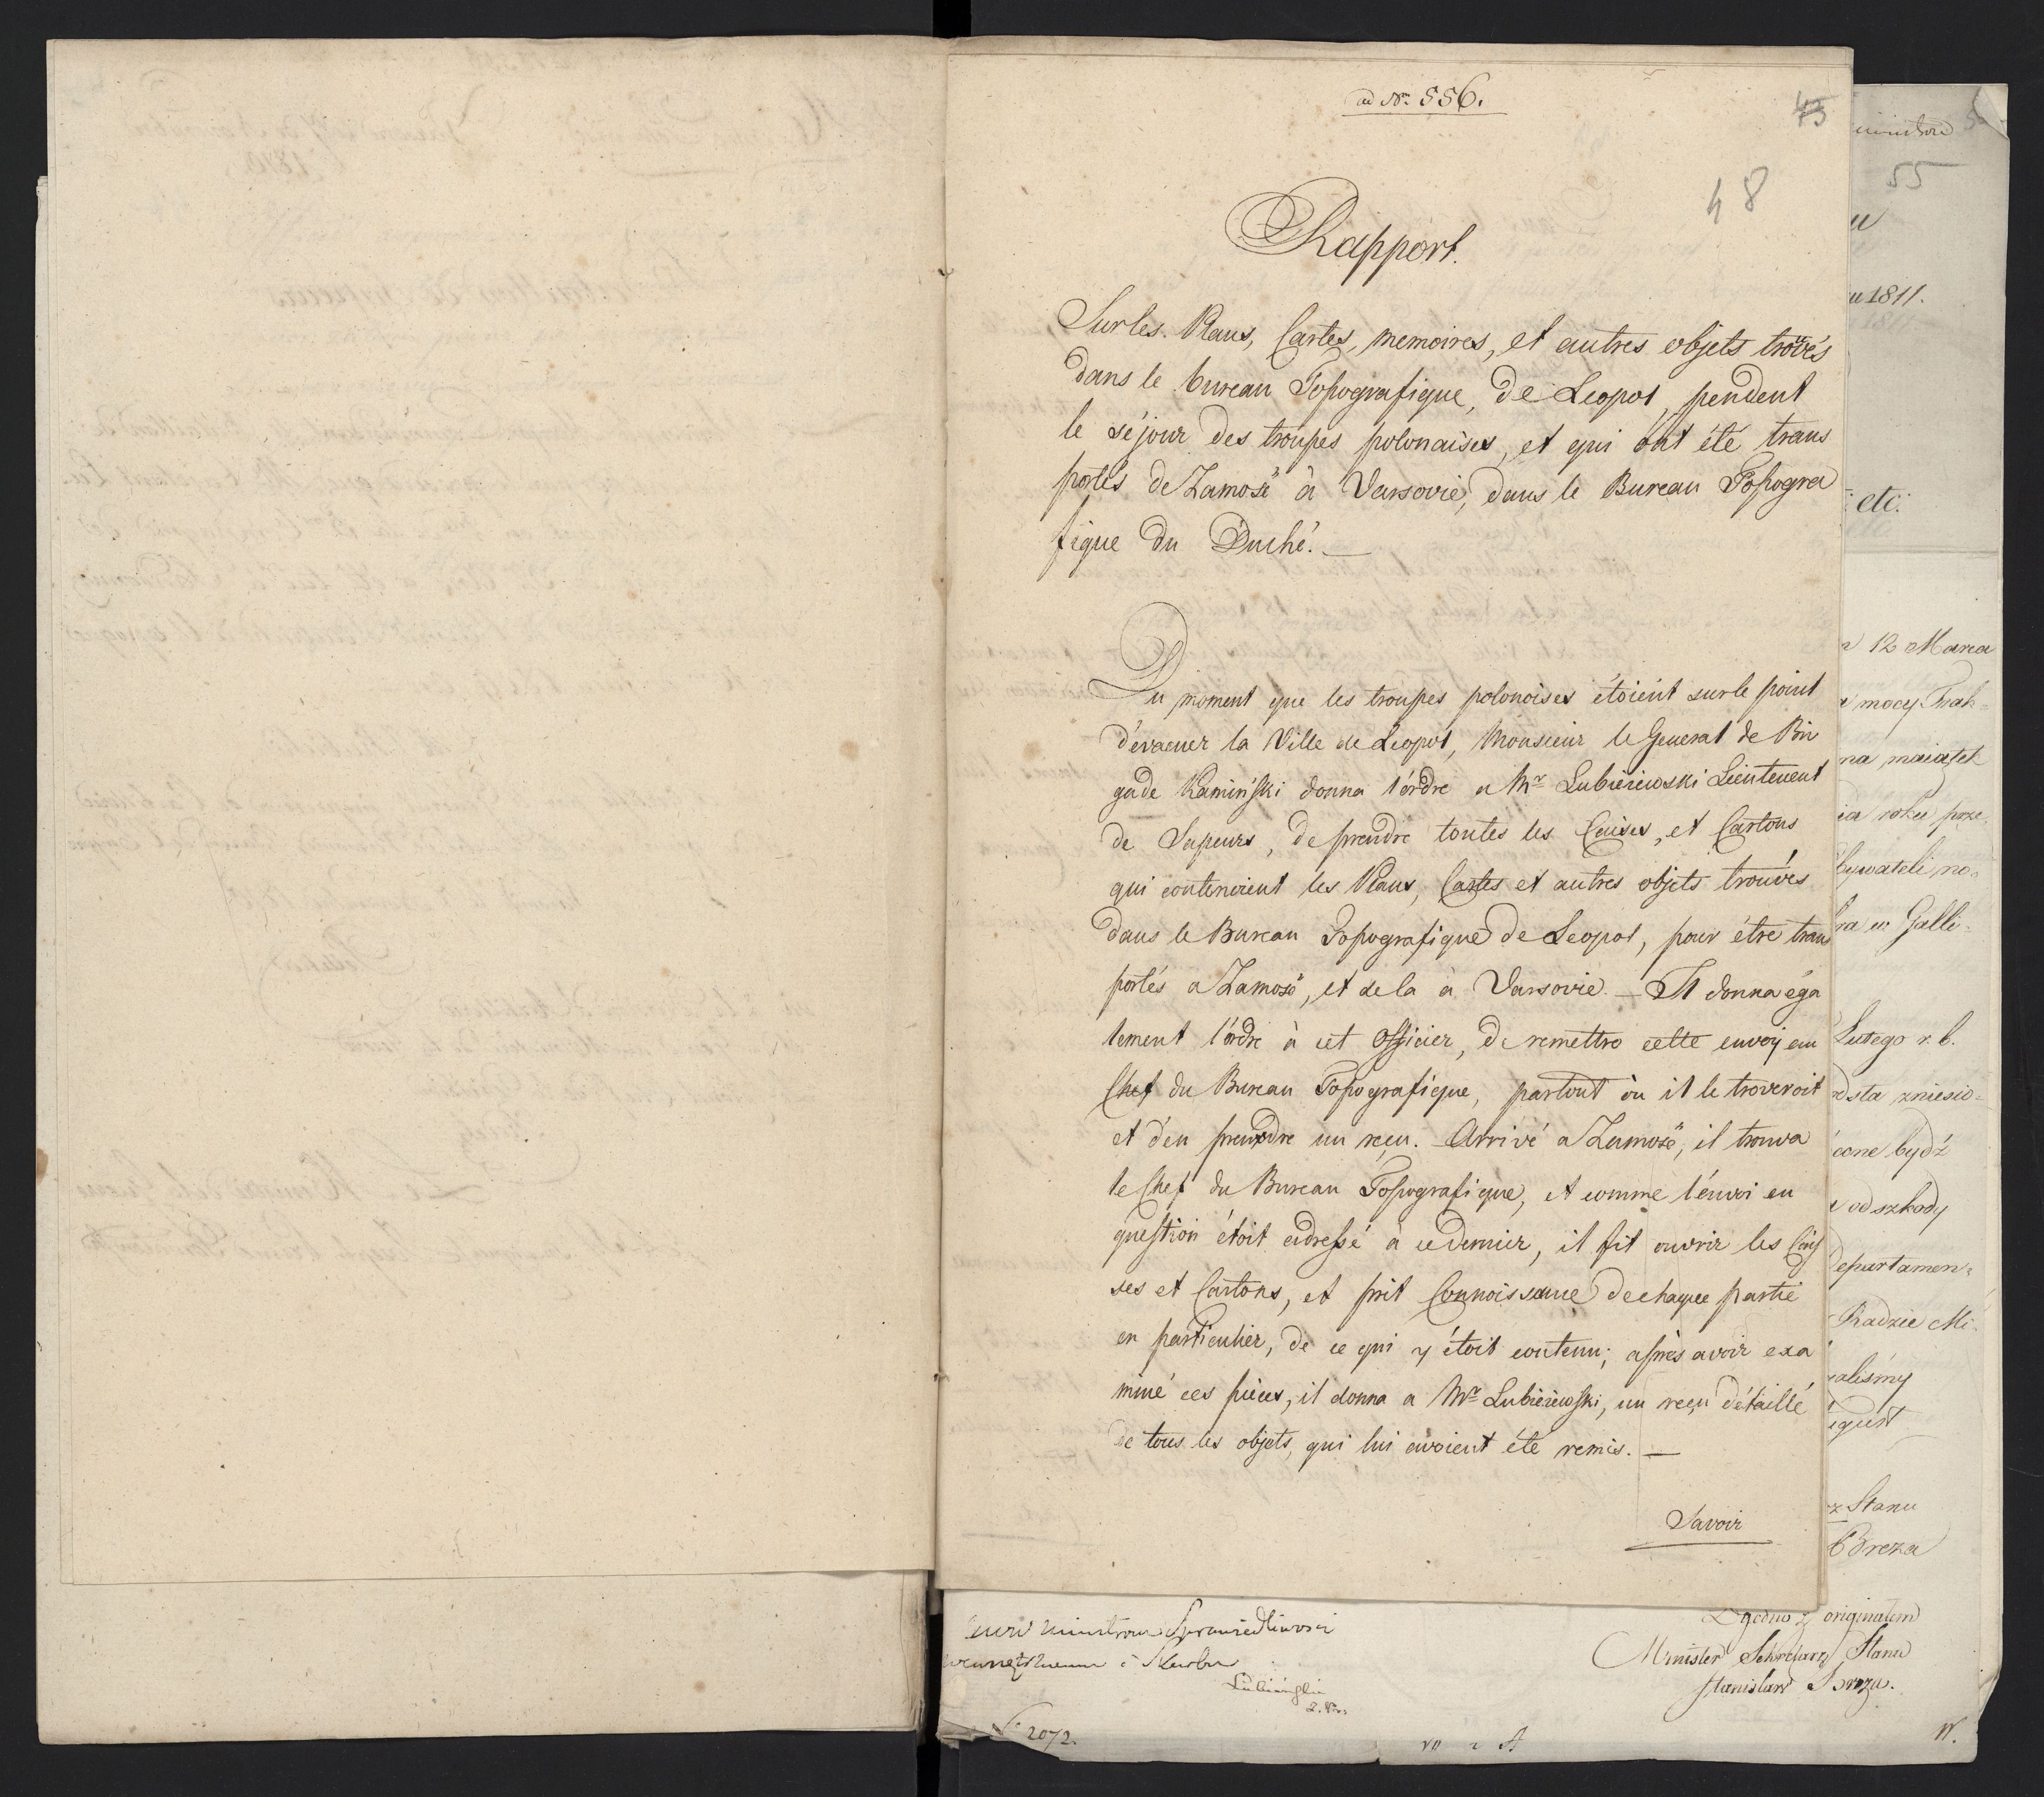 ad Nrm 556.
48
Rapport.
Sur les Plans, Cartes, memoires, et autres objets trouvés
dans le bureau Topografique, de Leopol, pendent
le séjour des troupes polonaises, et qui ont été trans
portés de Zamosć à Varsovie, dans le Bureau Topogra
fique du Duché. —
Du moment que les troupes polonoises étoient sur le point
d'évacuer la Ville de Leopol, Monsieur le General de Bri
gade Kamiński donna l'ordre a Mr Lubiéiewski Lieutenent
de Sapeurs, de prendre toutes les Caises, et Cartons
qui contenoient les Plans, Cartes et autres objets trouvés
dans le Bureau Topografique de Leopol, pour être trans
portés a Zamosć, et de la à Varsovie. — Il donna éga
lement l'ordre à cet Officier, de remettre cette envoy au
Chef du Bureau Topografique, partout òu il le troveroit
et d'en prendre un reçu. Arrivé a Zamosć, il trouva
le Chef du Bureau Topografique, et comme l'envoi en
question étoit adressé à ce dernier, il fit ouvrir les Cais
ses et Cartons, et prit Connoissance de chaque partie
en particulier, de ce qui y étoit contenu; après avoir exa
miné ces pièces, il donna a Mr Lubiéiewski, un reçu détaillé
de tous les objets, qui lui avoient été remis. —
Savoir
55
u 1811.
etc:
12 Marca
mocy Trak=
na maiątek
roku prze
bywateli, no=
na w Galli=
Lutego r. b.
zniesio=
cone bydź
od szkody
departamen=
Radzie Mi=
aliśmy
z Stanu
Breza
Zgodno z originałem
Minister Sekretarz Stanu
Stanisław Breza.
Sprawiedliwości
i Skarbu
2072.
W.